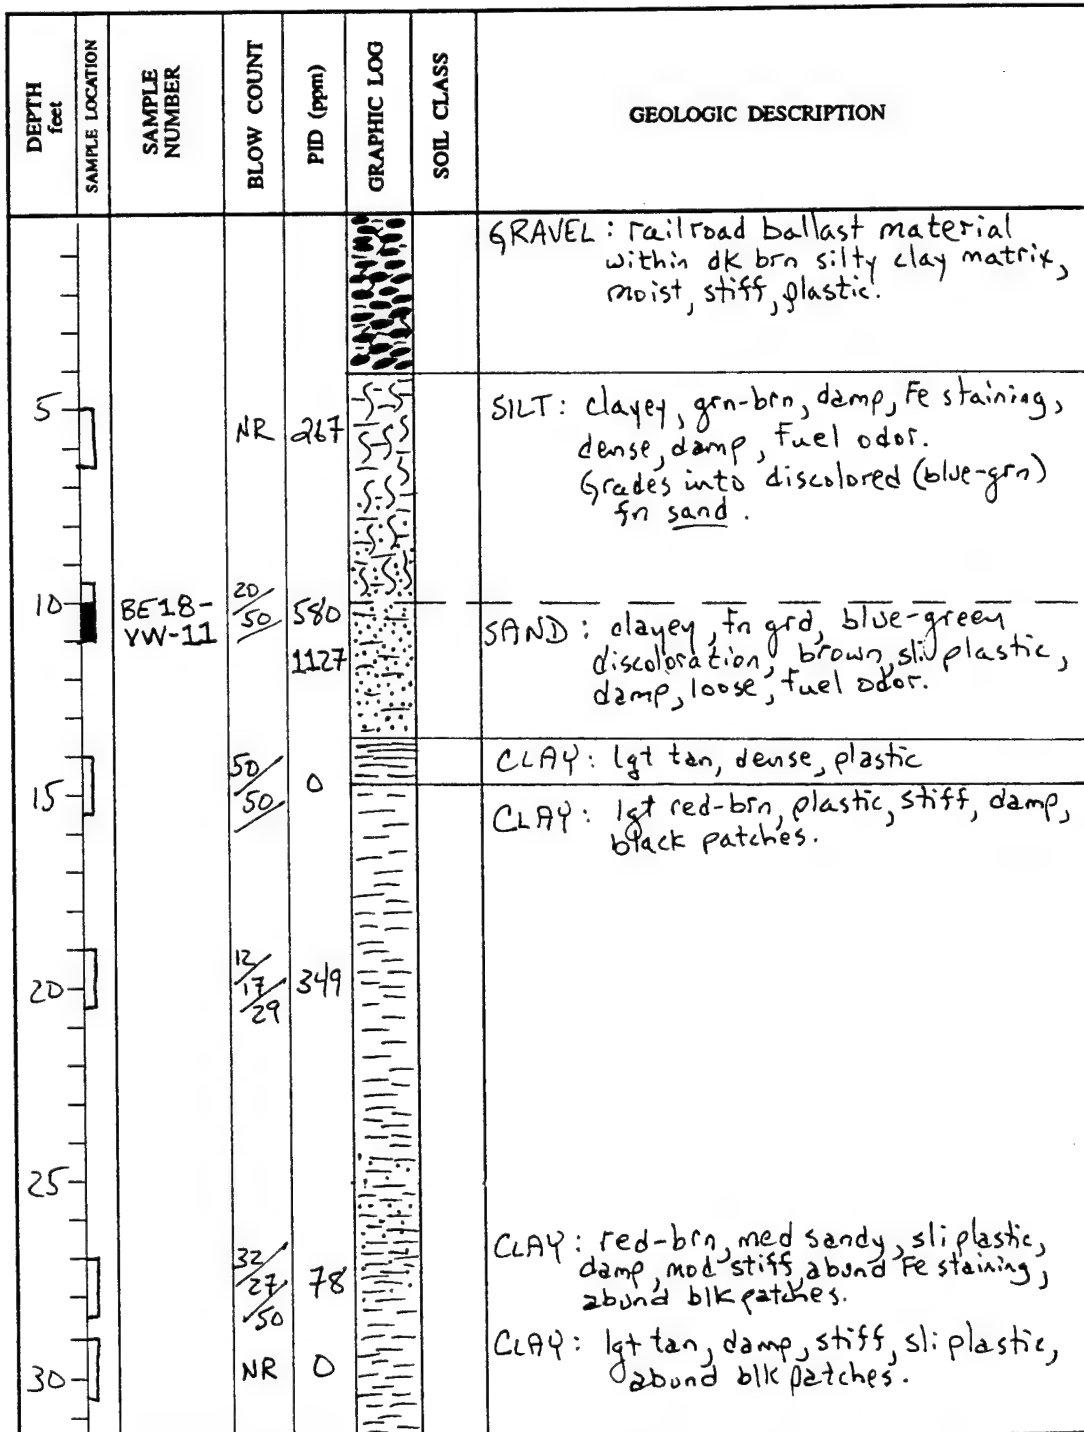 DEPTH
feet
SAMPLE LOCATION
SAMPLE
NUMBER
BLOW COUNT
PID (ppm)
GRAPHIC LOG
SOIL CLASS
GEOLOGIC DESCRIPTION
GRAVEL: railroad ballast material
within dk brn silty clay matrix,
moist, stiff, plastic.
5
NR
267
SILT: clayey, grn-brn, damp, Fe staining,
dense, damp, fuel odor.
Grades into discolored (blue-grn)
fn sand.
10
BE18-
YW-11
20
50
580
1127
SAND: clayey, fn grd, blue-green
discoloration, brown, sli plastic,
damp, loose, fuel odor.
CLAY: lgt tan, dense, plastic
15
50
50
0
CLAY: lgt red-brn, plastic, stiff, damp,
black patches.
20
12
17
29
349
25
32
27
50
78
CLAY: red-brn, med sandy, sli plastic,
damp, mod stiff, abund Fe staining,
abund blk patches.
30
NR
0
CLAY: lgt tan, damp, stiff, sli plastic,
abund blk patches.